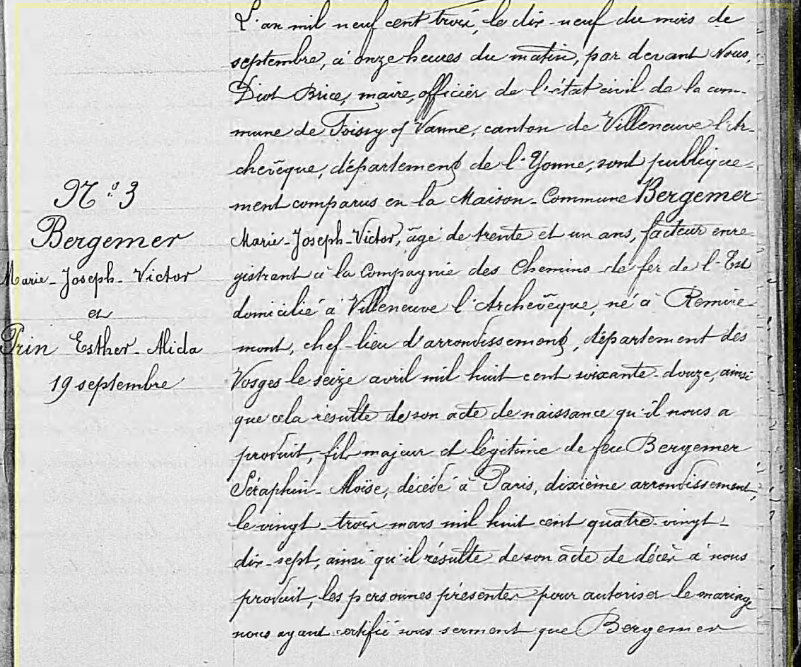 N° 3
Bergemer
Marie-Joseph-Victor
et
Prin Esther-Alida
19 septembre
L'an mil neuf cent trois, le dix-neuf du mois de
septembre, à onze heures du matin, par devant Nous,
Diot Brice, maire, officier de l'état civil de la com-
mune de Foissy s/ Vanne, canton de Villeneuve l'Ar-
chevêque, département de l'Yonne, sont publique-
ment comparus en la Maison-Commune Bergemer
Marie-Joseph-Victor, âgé de trente et un ans, facteur enre-
gistrant à la Compagnie des Chemins de fer de l'Est
domicilié à Villeneuve l'Archevêque, né à Remire-
mont, chef-lieu d'arrondissement, département des
Vosges le seize avril mil huit cent soixante-douze, ainsi
que cela résulte de son acte de naissance qu'il nous a
produit, fils majeur et légitime de feu Bergemer
Séraphin-Moïse, décédé à Paris, dixième arrondissement,
le vingt-trois mars mil huit cent quatre-vingt-
dix-sept, ainsi qu'il résulte de son acte de décès à nous
produit, les personnes présentes pour autoriser le mariage
nous ayant certifié sous serment que Bergemer